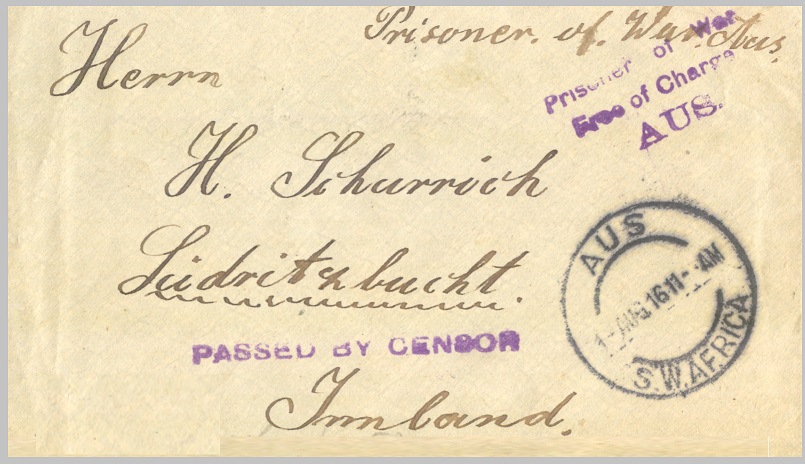 Prisoner. of. War. Aus.
Herrn
Prisoner of War
Free of Charge
AUS.
H. Schurrich
Lüdritzbucht.
AUS
1-AUG 16 11- AM
S.W.AFRICA
PASSED BY CENSOR
Innland.